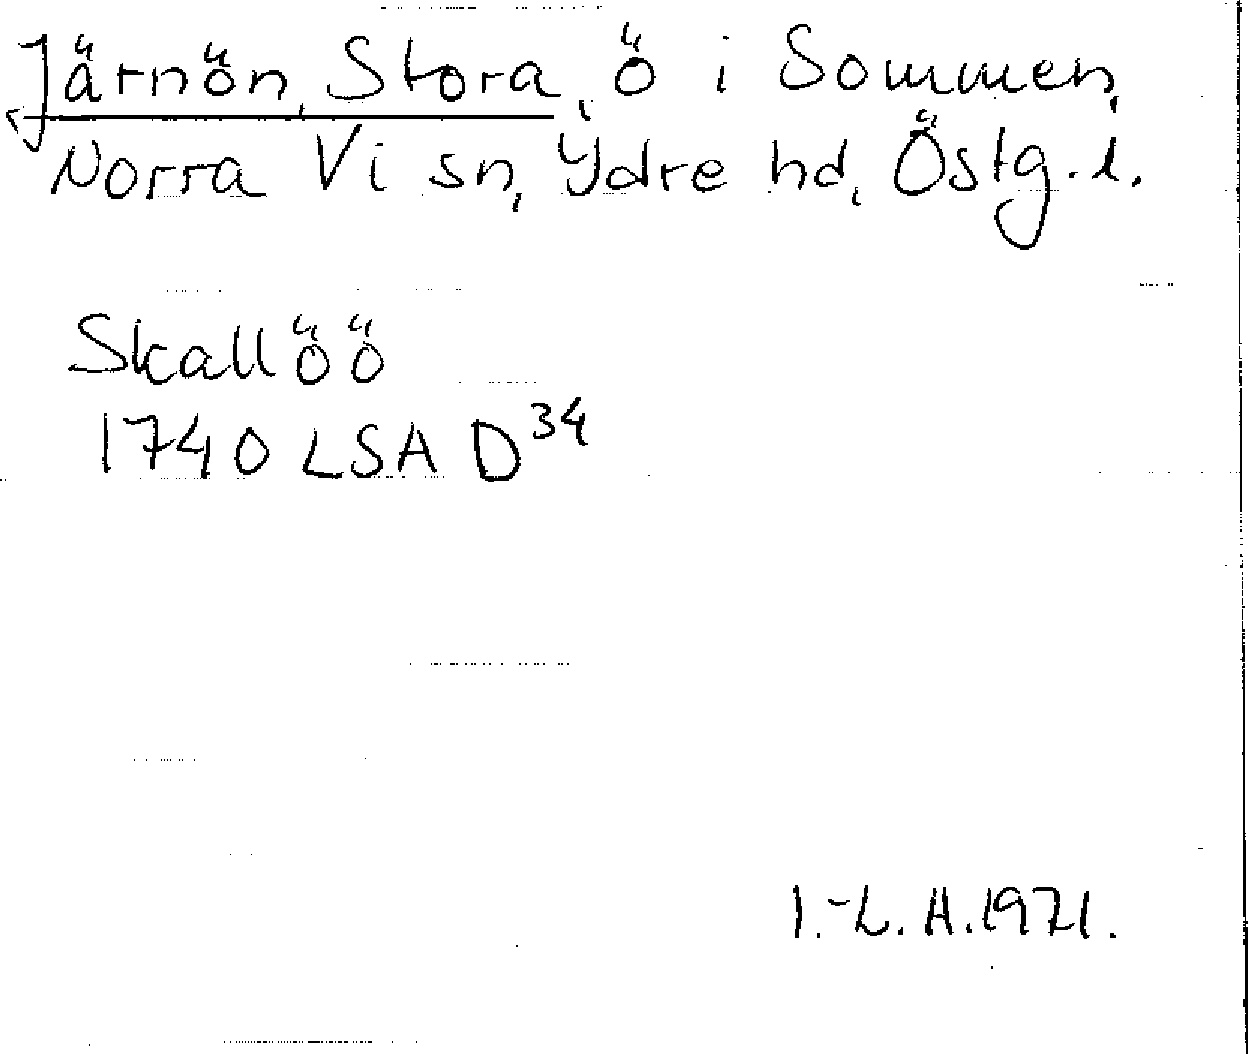 Järnön, Stora, ö i Sommen,
Norra Vi sn, Ydre hd, Östg. l.
Skallöö
1740 LSA D³⁴
I.-L. H. 1971.